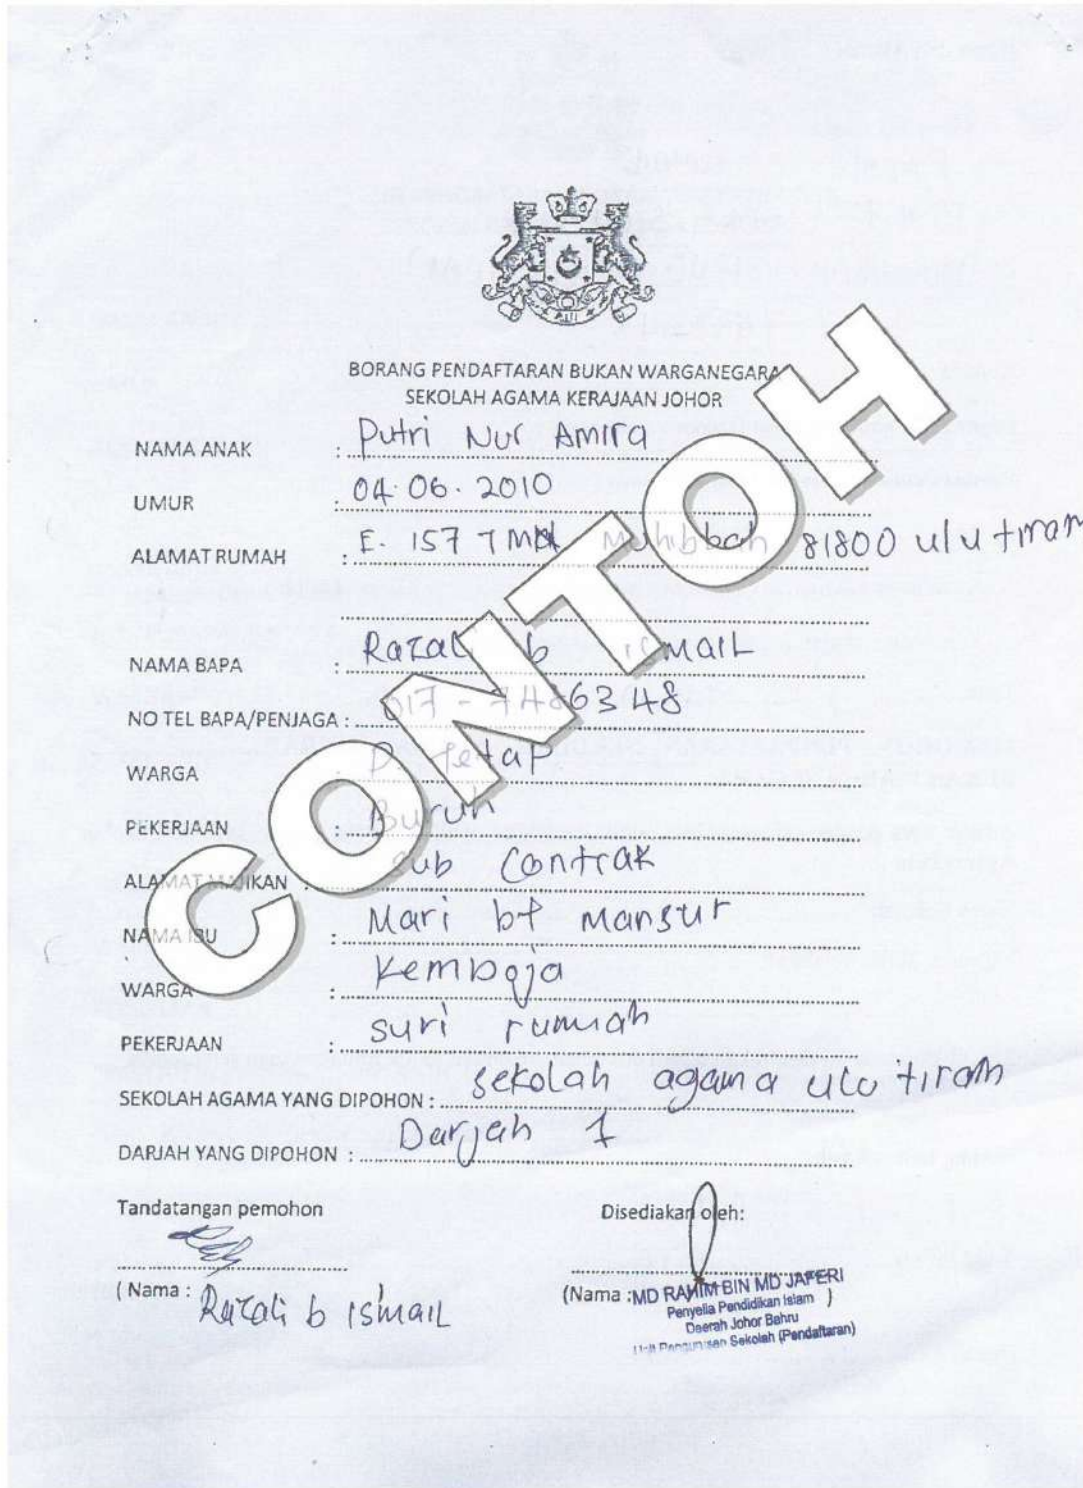 BORANG PENDAFTARAN BUKAN WARGANEGARA
SEKOLAH AGAMA KERAJAAN JOHOR
NAMA ANAK : Putri Nur Amira
UMUR : 04.06.2010
ALAMAT RUMAH : E. 157 TMN Muhibbah 81800 ulu tiram
NAMA BAPA : Razali b ismaiL
NO TEL BAPA/PENJAGA : 017-7486348
WARGA : P. Tetap
PEKERJAAN : Buruh
ALAMAT MAJIKAN : sub Contrak
NAMA IBU : Mari bt Mansur
WARGA : Kemboja
PEKERJAAN : suri rumah
SEKOLAH AGAMA YANG DIPOHON : sekolah agama ulu tiram
DARJAH YANG DIPOHON : Darjah 1
Tandatangan pemohon Disediakan oleh:
( Nama : Razali b ismaiL (Nama : MD RAHIM BIN MD JAFERI )
Penyelia Pendidikan Islam
Daerah Johor Bahru
Unit Pengurusan Sekolah (Pendaftaran)
CONTOH